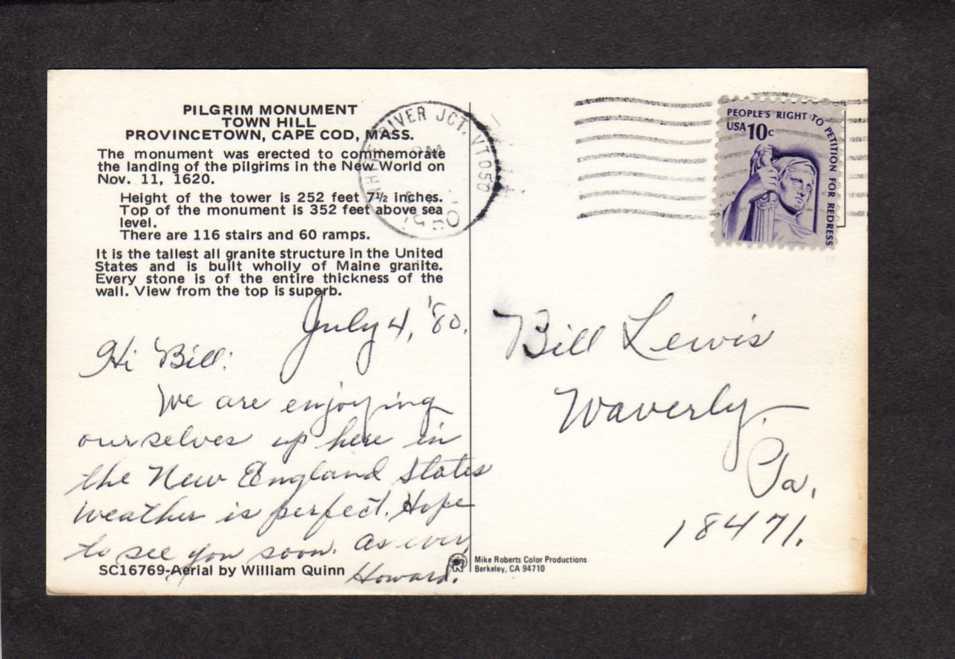 PILGRIM MONUMENT
TOWN HILL
PROVINCETOWN, CAPE COD, MASS.
The monument was erected to commemorate
the landing of the pilgrims in the New World on
Nov. 11, 1620.
Height of the tower is 252 feet 7½ inches.
Top of the monument is 352 feet above sea
level.
There are 116 stairs and 60 ramps.
It is the tallest all granite structure in the United
States and is built wholly of Maine granite.
Every stone is of the entire thickness of the
wall. View from the top is superb.
July 4, '80.
Hi Bill:
We are enjoying
ourselves up here in
the New England States
weather is perfect. Hope
to see you soon. As ever
Howard.
SC16769-Aerial by William Quinn
Mike Roberts Color Productions
Berkeley, CA 94710
RIVER JCT. VT 050
PM
PEOPLE'S RIGHT TO PETITION FOR REDRESS
USA 10c
Bill Lewis
Waverly,
Pa.
18471.